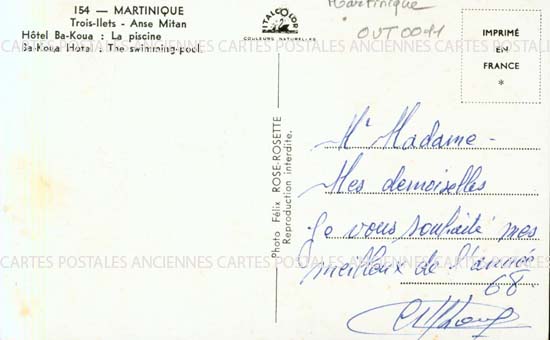 154 — MARTINIQUE
Trois-Ilets - Anse Mitan
Hôtel Ba-Koua : La piscine
Ba-Koua Hotel : The swimming-pool.
ITALCOLOR
COULEURS NATURELLES
Martinique
OUT0011
IMPRIMÉ
EN
FRANCE
*
Photo Félix ROSE-ROSETTE
Reproduction interdite.
Mr Madame -
Mes demoiselles
Je vous souhaite mes
meilleux de l'année
68.
CARTES POSTALES ANCIENNES CARTES POSTALES ANCIENNES CARTES POSTALES ANCIENNES